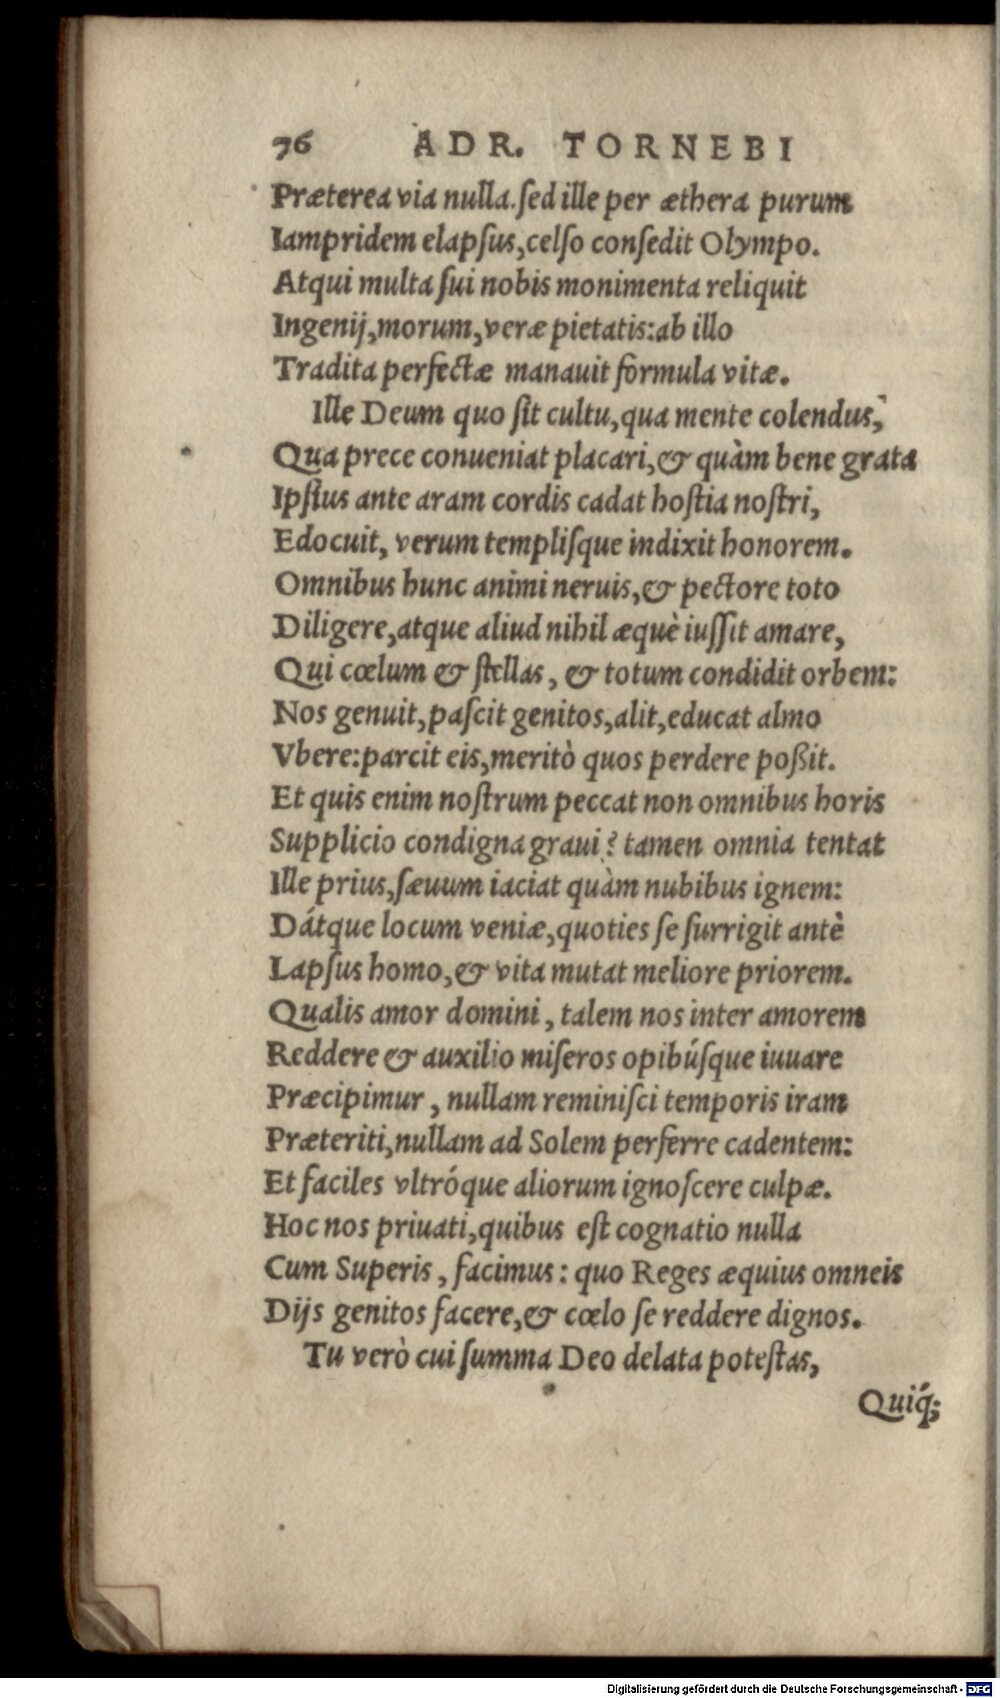 76 ADR. TORNEBI
Præterea via nulla. ſed ille per æthera purum
Iampridem elapſus, celſo conſedit Olympo.
Atqui multa ſui nobis monimenta reliquit
Ingenij, morum, veræ pietatis: ab illo
Tradita perfectæ manauit formula vitæ.
Ille Deum quo ſit cultu, qua mente colendus,
Qua prece conueniat placari, & quàm bene grata
Ipſius ante aram cordis cadat hoſtia noſtri,
Edocuit, verum templiſque indixit honorem.
Omnibus hunc animi neruis, & pectore toto
Diligere, atque aliud nihil æquè iuſſit amare,
Qui cœlum & ſtellas, & totum condidit orbem:
Nos genuit, paſcit genitos, alit, educat almo
Vbere: parcit eis, meritò quos perdere poßit.
Et quis enim noſtrum peccat non omnibus horis
Supplicio condigna graui? tamen omnia tentat
Ille prius, ſæuum iaciat quàm nubibus ignem:
Dátque locum veniæ, quoties ſe ſurrigit antè
Lapſus homo, & vita mutat meliore priorem.
Qualis amor domini, talem nos inter amorem
Reddere & auxilio miſeros opibúſque iuuare
Præcipimur, nullam reminiſci temporis iram
Præteriti, nullam ad Solem perferre cadentem:
Et faciles vltróque aliorum ignoſcere culpæ.
Hoc nos priuati, quibus eſt cognatio nulla
Cum Superis, facimus: quo Reges æquius omneis
Dijs genitos facere, & cœlo ſe reddere dignos.
Tu verò cui ſumma Deo delata poteſtas,
Quiq́;
Digitalisierung gefördert durch die Deutsche Forschungsgemeinschaft - DFG